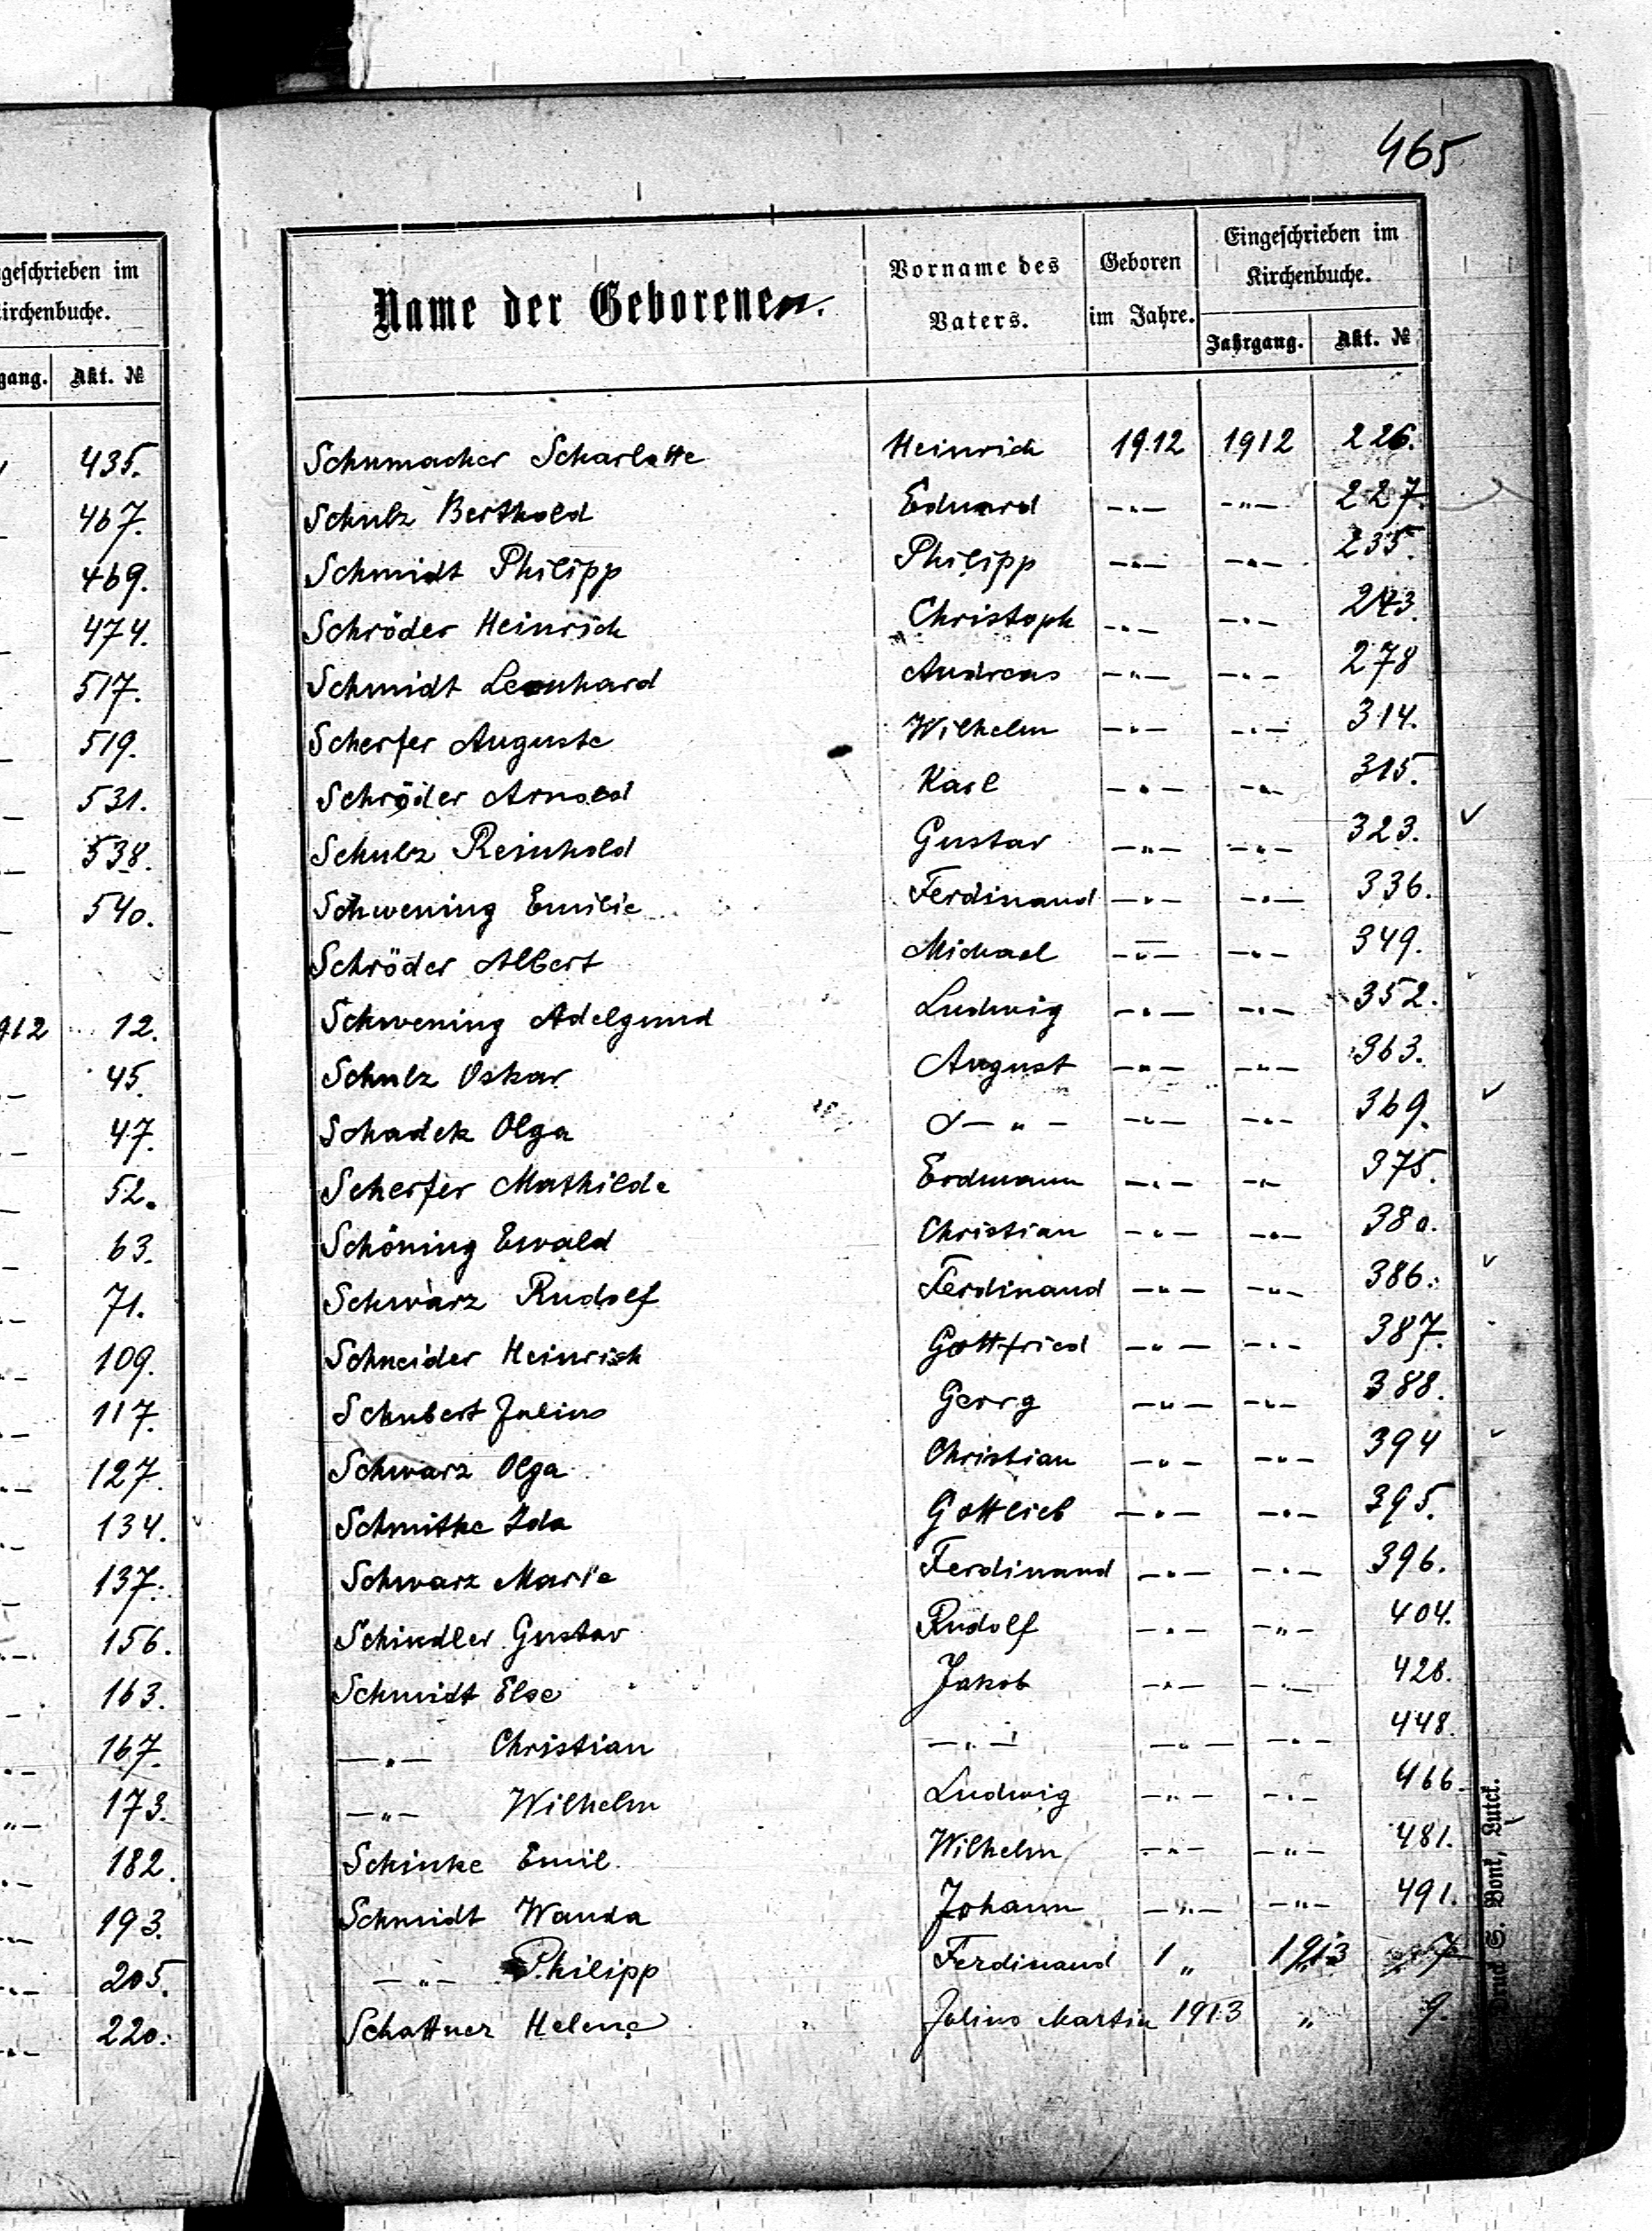 465
geschrieben im
irchenbuche.
gang. Akt. №
435.
467.
469.
474.
517.
519.
531.
538.
540.
912 12.
45.
47.
52.
63.
71.
109.
117.
127.
134.
137.
156.
163.
167.
173.
182.
193.
205.
220.
Name der Geborenen. Vorname des Vaters. Geboren im Jahre. Eingeschrieben im Kirchenbuche.
Jahrgang. Akt. №
Schumacher Scharlotte Heinrich 1912 1912 226.
Schulz Berthold Eduard —"— —"— 227.
Schmidt Philipp Philipp —"— —"— 235.
Schröder Heinrich Christoph —"— —"— 243.
Schmidt Leonhard Andreas —"— —"— 278
Scherfer Auguste Wilhelm —"— —"— 314.
Schröder Arnold Karl —"— —"— 315.
Schulz Reinhold Gustav —"— —"— 323. ✓
Schwening Emilie Ferdinand —"— —"— 336.
Schröder Albert Michael —"— —"— 349.
Schwening Adelgund Ludwig —"— —"— 352.
Schulz Oskar August —"— —"— 363.
Schadek Olga —"— —"— —"— 369. ✓
Scherfer Mathilde Erdmann —"— —"— 375.
Schöning Ewald Christian —"— —"— 380.
Schwarz Rudolf Ferdinand —"— —"— 386. ✓
Schneider Heinrich Gottfried —"— —"— 387.
Schubert Julius Georg —"— —"— 388.
Schwarz Olga Christian —"— —"— 394 ✓
Schmitke Ida Gottlieb —"— —"— 395.
Schwarz Marie Ferdinand —"— —"— 396.
Schindler Gustav Rudolf —"— —"— 404.
Schmidt Else Jakob —"— —"— 428.
—"— Christian —"— —"— —"— 448.
—"— Wilhelm Ludwig —"— —"— 466.
Schinke Emil Wilhelm —"— —"— 481.
Schmidt Wanda Johann —"— —"— 491.
—"— Philipp Ferdinand 1 " 1913 7
Schattner Helene Julius Martin 1913 " 9.
Druck S. Bont, Luck.